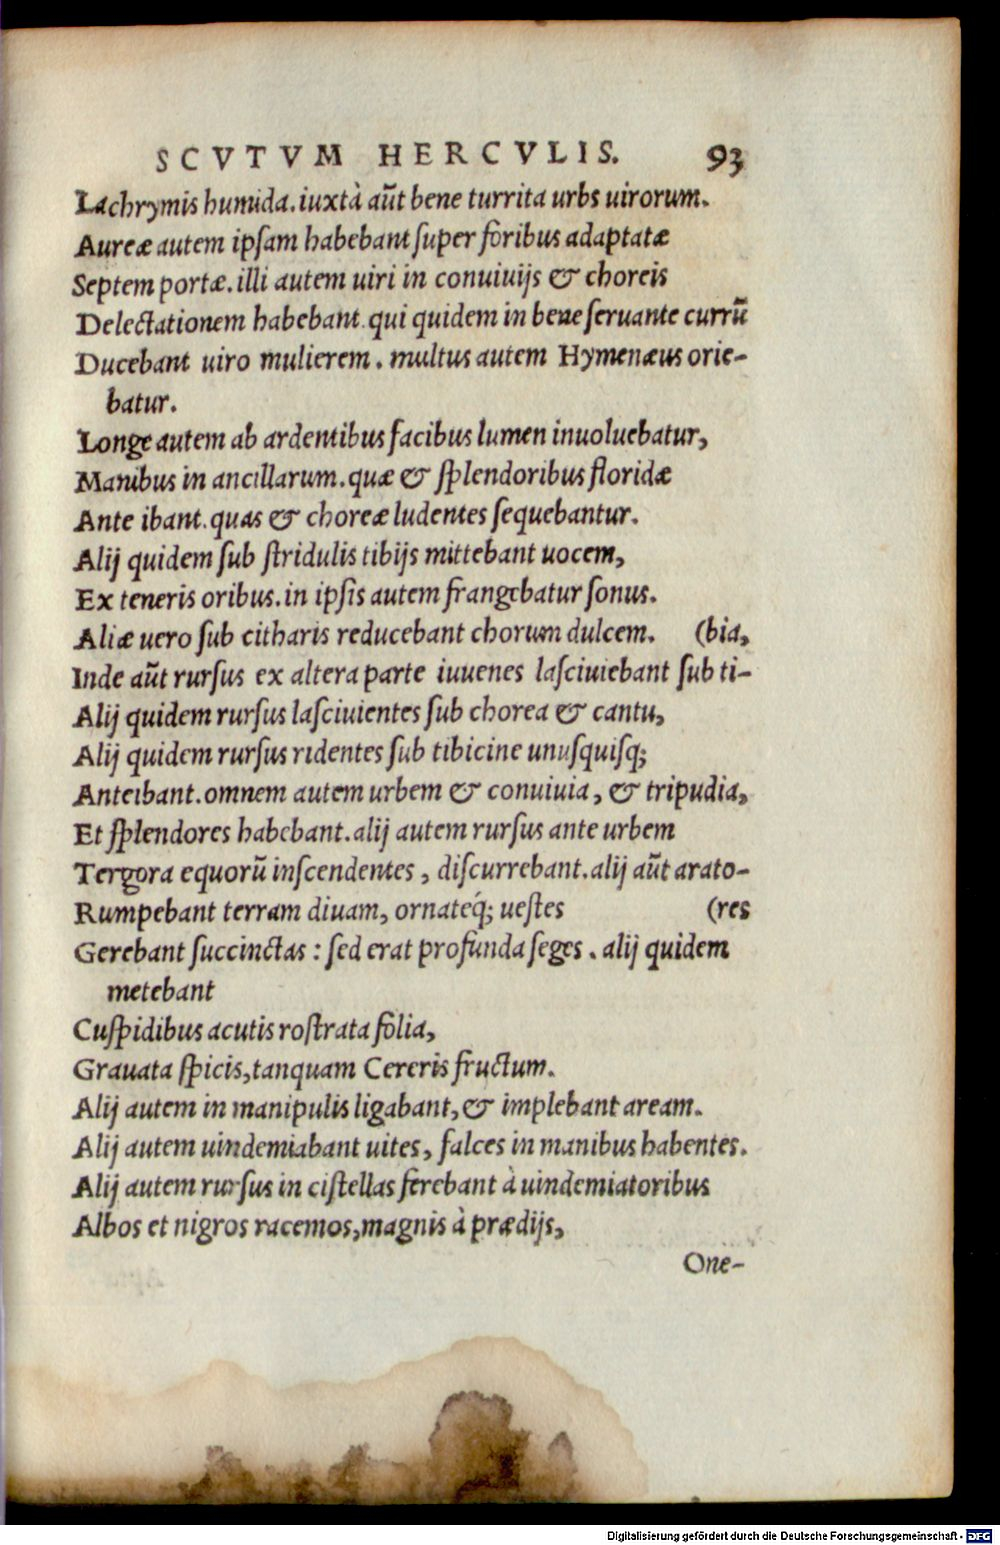 SCVTVM HERCVLIS. 93
Lachrymis humida. iuxtà aũt bene turrita urbs uirorum.
Aureæ autem ipſam habebant ſuper foribus adaptatæ
Septem portæ. illi autem uiri in conuiuijs & choreis
Delectationem habebant. qui quidem in bene ſeruante currũ
Ducebant uiro mulierem. multus autem Hymenæus orie-
batur.
Longe autem ab ardentibus facibus lumen inuoluebatur,
Manibus in ancillarum. quæ & ſplendoribus floridæ
Ante ibant. quas & choreæ ludentes ſequebantur.
Alij quidem ſub ſtridulis tibijs mittebant uocem,
Ex teneris oribus. in ipſis autem frangebatur ſonus.
Aliæ uero ſub citharis reducebant chorum dulcem. (bia,
Inde aũt rurſus ex altera parte iuuenes laſciuiebant ſub ti-
Alij quidem rurſus laſciuientes ſub chorea & cantu,
Alij quidem rurſus ridentes ſub tibicine unuſquiſq;
Anteibant. omnem autem urbem & conuiuia, & tripudia,
Et ſplendores habebant. alij autem rurſus ante urbem
Tergora equorũ inſcendentes, diſcurrebant. alij aũt arato-
Rumpebant terram diuam, ornateq́; ueſtes (res
Gerebant ſuccinctas: ſed erat profunda ſeges. alij quidem
metebant
Cuſpidibus acutis roſtrata folia,
Grauata ſpicis, tanquam Cereris fructum.
Alij autem in manipulis ligabant, & implebant aream.
Alij autem uindemiabant uites, falces in manibus habentes.
Alij autem rurſus in ciſtellas ferebant à uindemiatoribus
Albos et nigros racemos, magnis à prædijs,
One-
Digitalisierung gefördert durch die Deutsche Forschungsgemeinschaft - DFG